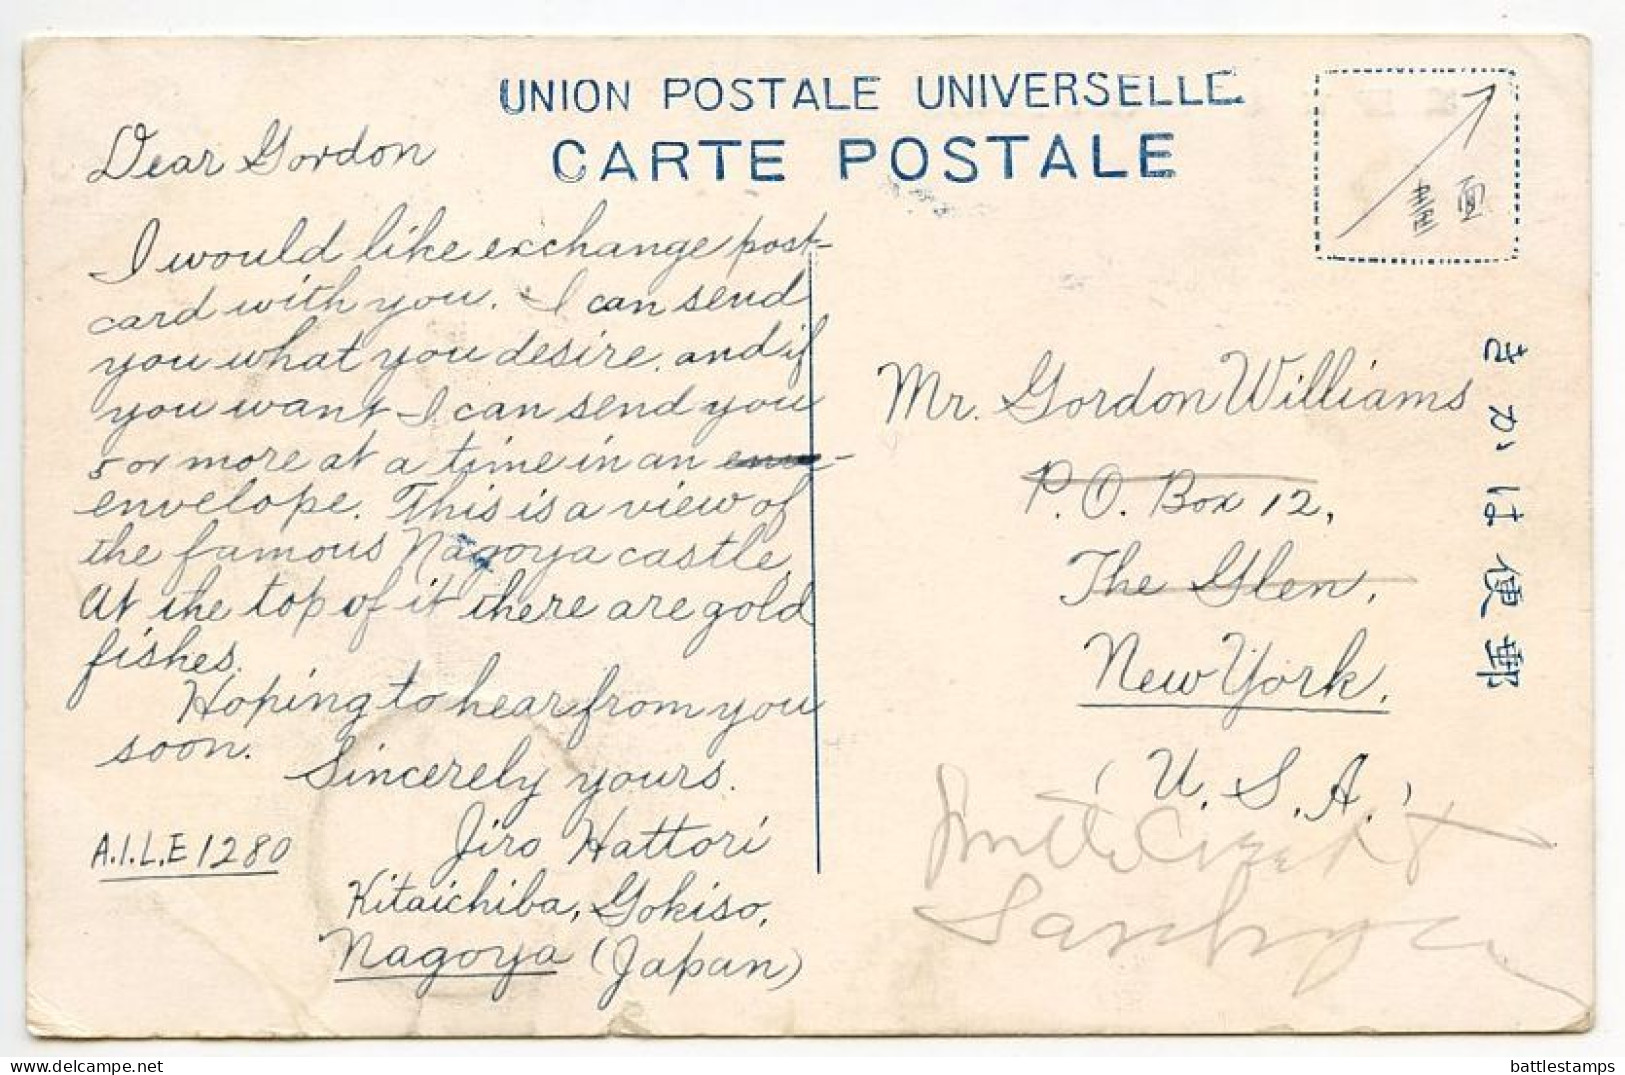 UNION POSTALE UNIVERSELLE
CARTE POSTALE
畫面
きかは便郵
Dear Gordon
I would like exchange post-
card with you. I can send
you what you desire. and if
you want I can send you
5 or more at a time in an enve-
envelope. This is a view of
the famous Nagoya castle.
At the top of it there are gold
fishes.
Hoping to hear from you
soon.
Sincerely yours.
Jiro Hattori
A.I.L.E 1280
Kitaichiba, Gokiso,
Nagoya (Japan)
Mr. Gordon Williams
P.O. Box 12,
The Glen,
New York.
(U.S.A.)
battlestamps